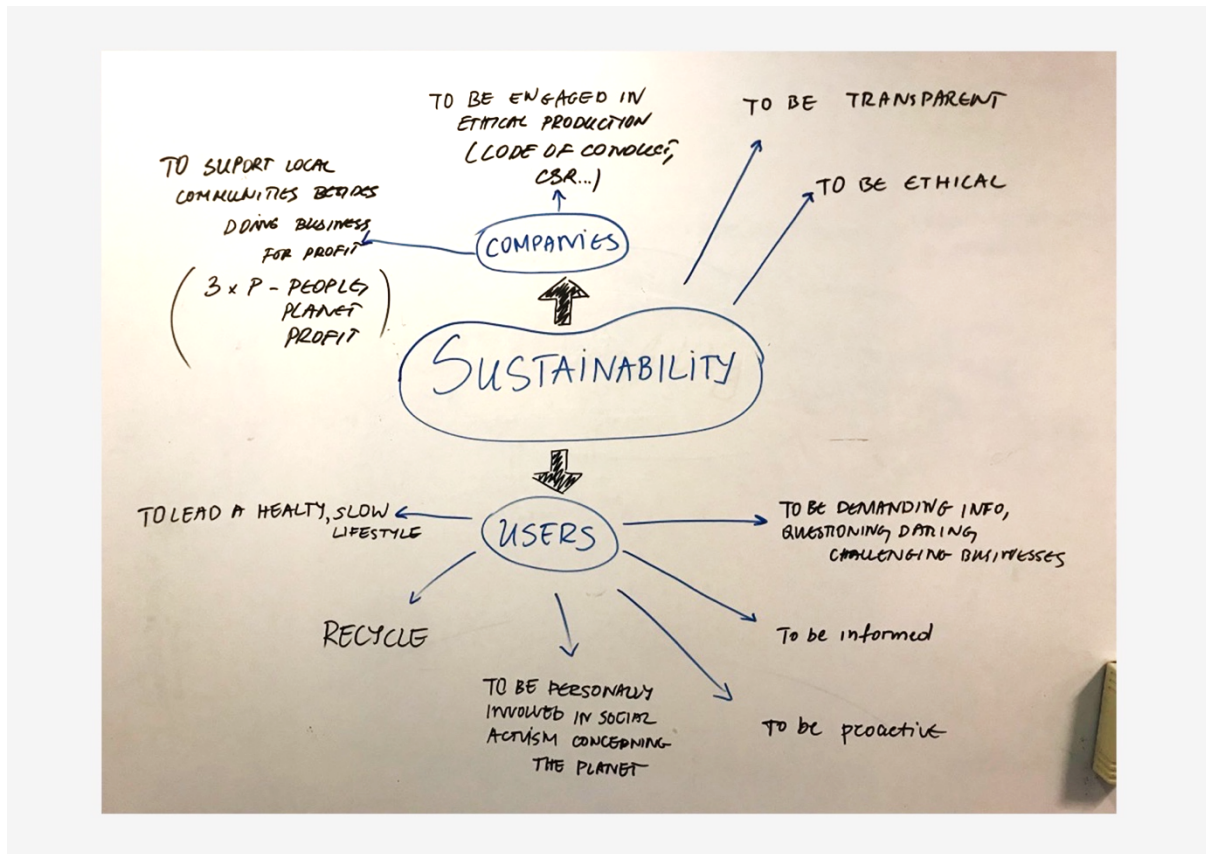 TO BE ENGAGED IN
ETHICAL PRODUCTION
(CODE OF CONDUCT,
CSR...)
TO BE TRANSPARENT
TO BE ETHICAL
TO SUPORT LOCAL
COMMUNITIES BESIDES
DOING BUSINESS
FOR PROFIT
(3 x P - PEOPLE,
PLANET
PROFIT)
COMPANIES
SUSTAINABILITY
USERS
TO LEAD A HEALTY, SLOW
LIFESTYLE
RECYCLE
TO BE PERSONALLY
INVOLVED IN SOCIAL
ACTIVISM CONCERNING
THE PLANET
TO BE DEMANDING INFO,
QUESTIONING DARING,
CHALLENGING BUSINESSES
To be informed
To be proactive